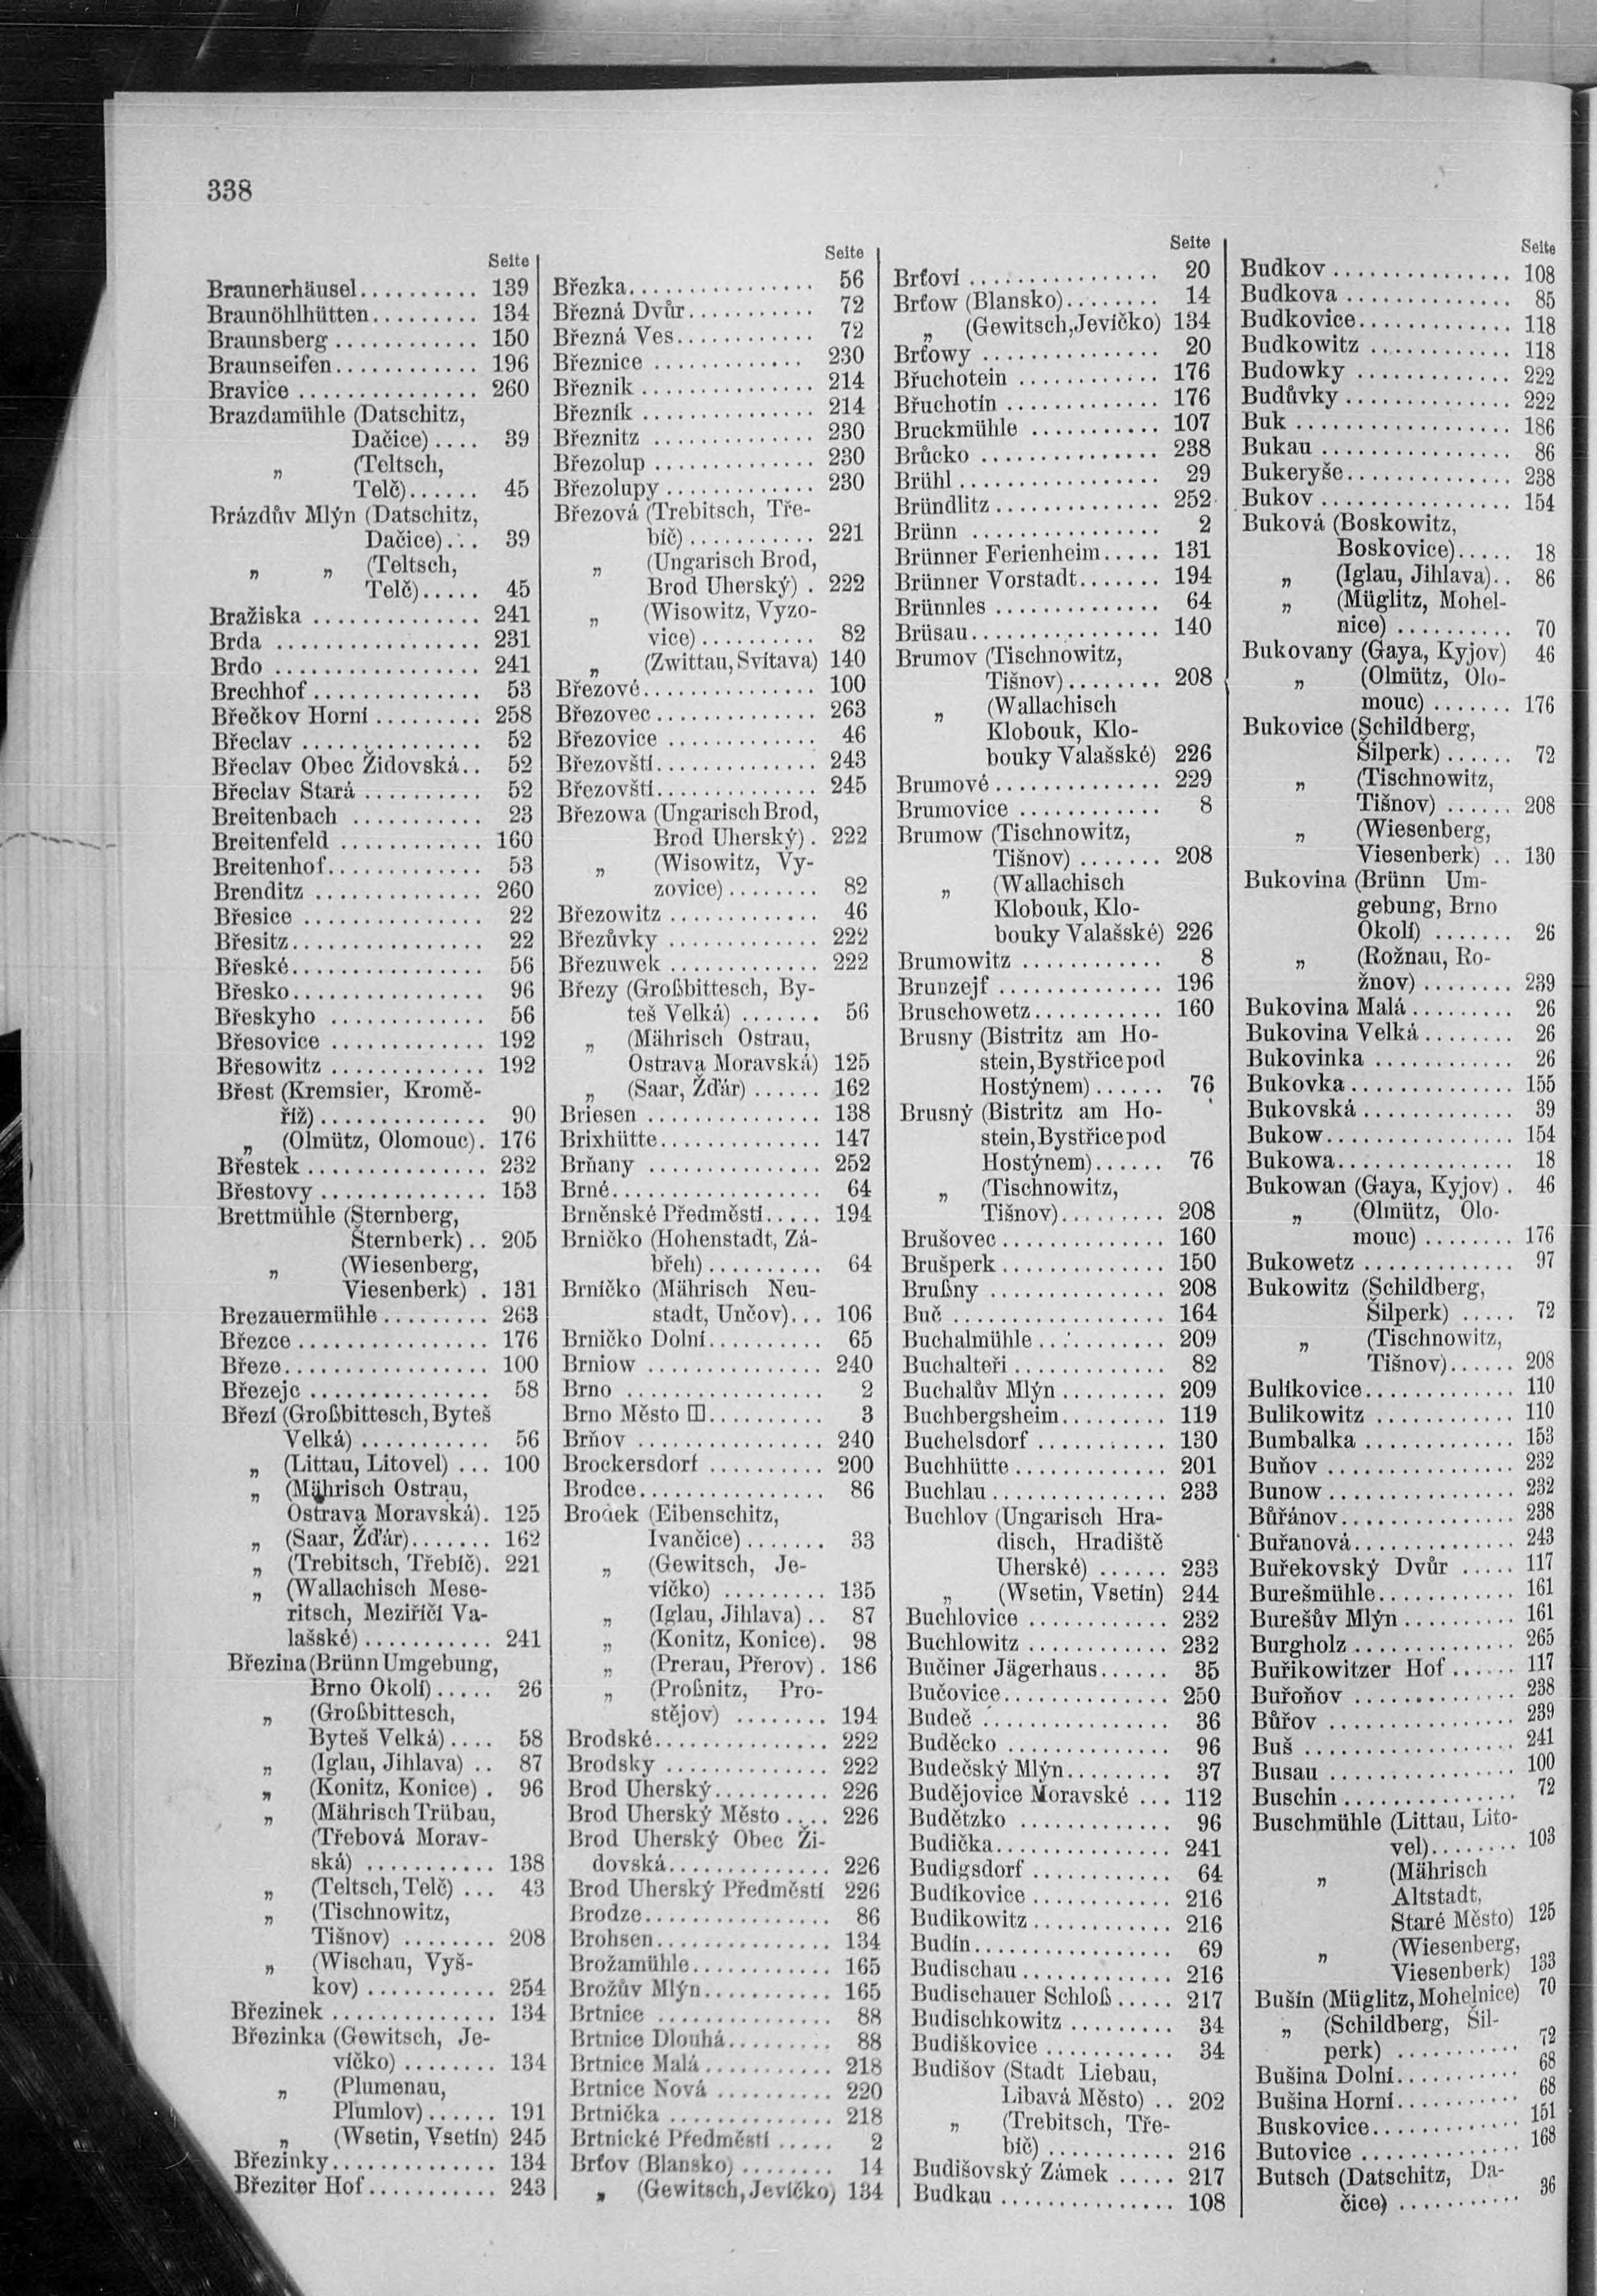 338
Seite
Braunerhäusel........... 139
Braunöhlhütten.......... 134
Braunsberg ............ 150
Braunseifen............ 196
Bravice ................ 260
Brazdamühle (Datschitz,
Dačice).... 39
„ (Teltsch,
Telč)...... 45
Brázdův Mlýn (Datschitz,
Dačice)... 39
„ „ (Teltsch,
Telč)..... 45
Bražiska ............... 241
Brda .................. 231
Brdo .................. 241
Brechhof............... 53
Břečkov Horní ......... 258
Břeclav ................ 52
Břeclav Obec Židovská.. 52
Břeclav Stará .......... 52
Breitenbach ........... 23
Breitenfeld ............ 160
Breitenhof.............. 53
Brenditz ............... 260
Břesice ................ 22
Břesitz................. 22
Břeské................. 56
Břesko................. 96
Břeskyho .............. 56
Břesovice .............. 192
Břesowitz .............. 192
Břest (Kremsier, Kromě-
říž)............... 90
„ (Olmütz, Olomouc). 176
Břestek ................ 232
Břestovy ............... 153
Brettmühle (Sternberg,
Šternberk).. 205
„ (Wiesenberg,
Viesenberk) . 131
Brezauermühle ......... 263
Březce ................. 176
Březe.................. 100
Březejc ................ 58
Březí (Großbittesch, Byteš
Velká) ............ 56
„ (Littau, Litovel) ... 100
„ (Mährisch Ostrau,
Ostrava Moravská). 125
„ (Saar, Žďár)....... 162
„ (Trebitsch, Třebíč). 221
„ (Wallachisch Mese-
ritsch, Meziříčí Va-
lašské)............ 241
Březina (Brünn Umgebung,
Brno Okolí)..... 26
„ (Großbittesch,
Byteš Velká).... 58
„ (Iglau, Jihlava) .. 87
„ (Konitz, Konice) . 96
„ (Mährisch Trübau,
(Třebová Morav-
ská) ............ 138
„ (Teltsch, Telč) ... 43
„ (Tischnowitz,
Tišnov) ........ 208
„ (Wischau, Vyš-
kov)............ 254
Březinek ............... 134
Březinka (Gewitsch, Je-
víčko) ........ 134
„ (Plumenau,
Plumlov)...... 191
„ (Wsetin, Vsetín) 245
Březinky............... 134
Březiter Hof........... 243
Seite
Březka................. 56
Březná Dvůr........... 72
Březná Ves............. 72
Březnice ............... 230
Březnik ................ 214
Březník ................ 214
Březnitz ............... 230
Březolup ............... 230
Březolupy .............. 230
Březová (Trebitsch, Tře-
bíč)............ 221
„ (Ungarisch Brod,
Brod Uherský) . 222
„ (Wisowitz, Vyzo-
vice).......... 82
„ (Zwittau, Svitava) 140
Březové................ 100
Březovec............... 263
Březovice .............. 46
Březovští............... 243
Březovští............... 245
Březowa (Ungarisch Brod,
Brod Uherský). 222
„ (Wisowitz, Vy-
zovice)........ 82
Březowitz .............. 46
Březůvky .............. 222
Březuwek .............. 222
Březy (Großbittesch, By-
teš Velká) ....... 56
„ (Mährisch Ostrau,
Ostrava Moravská) 125
„ (Saar, Žďár) ...... 162
Briesen ................ 138
Brixhütte............... 147
Brňany ................ 252
Brné................... 64
Brněnské Předměstí..... 194
Brničko (Hohenstadt, Zá-
břeh).......... 64
Brníčko (Mährisch Neu-
stadt, Unčov)... 106
Brničko Dolní.......... 65
Brniow ................ 240
Brno .................. 2
Brno Město III.......... 3
Brňov ................. 240
Brockersdorf .......... 200
Brodce................. 86
Brodek (Eibenschitz,
Ivančice)....... 33
„ (Gewitsch, Je-
víčko) ......... 135
„ (Iglau, Jihlava) .. 87
„ (Konitz, Konice). 98
„ (Prerau, Přerov). 186
„ (Proßnitz, Pro-
stějov) ........ 194
Brodské................ 222
Brodsky ............... 222
Brod Uherský.......... 226
Brod Uherský Město .... 226
Brod Uherský Obec Ži-
dovská............... 226
Brod Uherský Předměstí 226
Brodze................. 86
Brohsen................ 134
Brožamühle............. 165
Brožův Mlýn........... 165
Brtnice ................ 88
Brtnice Dlouhá......... 88
Brtnice Malá........... 218
Brtnice Nová .......... 220
Brtnička ............... 218
Brtnické Předměstí ..... 2
Brťov (Blansko)........ 14
„ (Gewitsch, Jevíčko) 134
Seite
Brťoví ................. 20
Brťow (Blansko)........ 14
„ (Gewitsch, Jevíčko) 134
Brťowy ................ 20
Břuchotein ............. 176
Břuchotín .............. 176
Bruckmühle ............ 107
Brůcko ................ 238
Brühl.................. 29
Bründlitz ............... 252
Brünn ................. 2
Brünner Ferienheim..... 131
Brünner Vorstadt....... 194
Brünnles ............... 64
Brüsau................. 140
Brumov (Tischnowitz,
Tišnov)........ 208
„ (Wallachisch
Klobouk, Klo-
bouky Valašské) 226
Brumové............... 229
Brumovice ............. 8
Brumow (Tischnowitz,
Tišnov) ....... 208
„ (Wallachisch
Klobouk, Klo-
bouky Valašské) 226
Brumowitz ............. 8
Brunzejf ............... 196
Bruschowetz............ 160
Brusny (Bistritz am Ho-
stein, Bystřice pod
Hostýnem)...... 76
Brusný (Bistritz am Ho-
stein, Bystřice pod
Hostýnem)...... 76
„ (Tischnowitz,
Tišnov)......... 208
Brušovec............... 160
Brušperk............... 150
Brußny ................ 208
Buč ................... 164
Buchalmühle ........... 209
Buchalteři.............. 82
Buchalův Mlýn ......... 209
Buchbergsheim......... 119
Buchelsdorf ............ 130
Buchhütte.............. 201
Buchlau................ 233
Buchlov (Ungarisch Hra-
disch, Hradiště
Uherské) ...... 233
„ (Wsetin, Vsetín) 244
Buchlovice ............. 232
Buchlowitz ............. 232
Bučiner Jägerhaus...... 35
Bučovice............... 250
Budeč ................. 36
Buděcko ............... 96
Budečský Mlýn......... 37
Budějovice Moravské ... 112
Budětzko .............. 96
Budička................ 241
Budigsdorf ............. 64
Budíkovice ............. 216
Budikowitz............. 216
Budín.................. 69
Budischau.............. 216
Budischauer Schloß..... 217
Budischkowitz .......... 34
Budíškovice ............ 34
Budišov (Stadt Liebau,
Libavá Město) .. 202
„ (Trebitsch, Tře-
bíč) ............ 216
Budišovský Zámek ..... 217
Budkau ................ 108
Seite
Budkov................. 108
Budkova ............... 85
Budkovice.............. 118
Budkowitz ............. 118
Budowky .............. 222
Budůvky ............... 222
Buk ................... 186
Bukau ................. 86
Bukeryše............... 238
Bukov ................. 154
Buková (Boskowitz,
Boskovice)..... 18
„ (Iglau, Jihlava).. 86
„ (Müglitz, Mohel-
nice) .......... 70
Bukovany (Gaya, Kyjov) 46
„ (Olmütz, Olo-
mouc) ....... 176
Bukovice (Schildberg,
Šilperk)...... 72
„ (Tischnowitz,
Tišnov) ...... 208
„ (Wiesenberg,
Viesenberk) .. 130
Bukovina (Brünn Um-
gebung, Brno
Okolí) ....... 26
„ (Rožnau, Ro-
žnov) ........ 239
Bukovina Malá......... 26
Bukovina Velká........ 26
Bukovinka ............. 26
Bukovka............... 155
Bukovská .............. 39
Bukow................. 154
Bukowa................ 18
Bukowan (Gaya, Kyjov) . 46
„ (Olmütz, Olo-
mouc) ........ 176
Bukowetz .............. 97
Bukowitz (Schildberg,
Šilperk) ..... 72
„ (Tischnowitz,
Tišnov)...... 208
Bulíkovice.............. 110
Bulikowitz ............. 110
Bumbalka .............. 153
Buňov ................. 232
Bunow................. 232
Bůřánov................ 238
Buřanová............... 243
Buřekovský Dvůr ..... 117
Burešmühle............. 161
Burešův Mlýn .......... 161
Burgholz ............... 265
Buřikowitzer Hof ...... 117
Buřoňov ............... 238
Bůřov ................. 239
Buš ................... 241
Busau ................. 100
Buschin ................ 72
Buschmühle (Littau, Lito-
vel)........ 103
„ (Mährisch
Altstadt,
Staré Město) 125
„ (Wiesenberg,
Viesenberk) 133
Bušín (Müglitz, Mohelnice) 70
„ (Schildberg, Šil-
perk) ........... 72
Bušina Dolní........... 68
Bušina Horní........... 68
Buskovice.............. 151
Butovice ............... 168
Butsch (Datschitz, Da-
čice) ........... 36